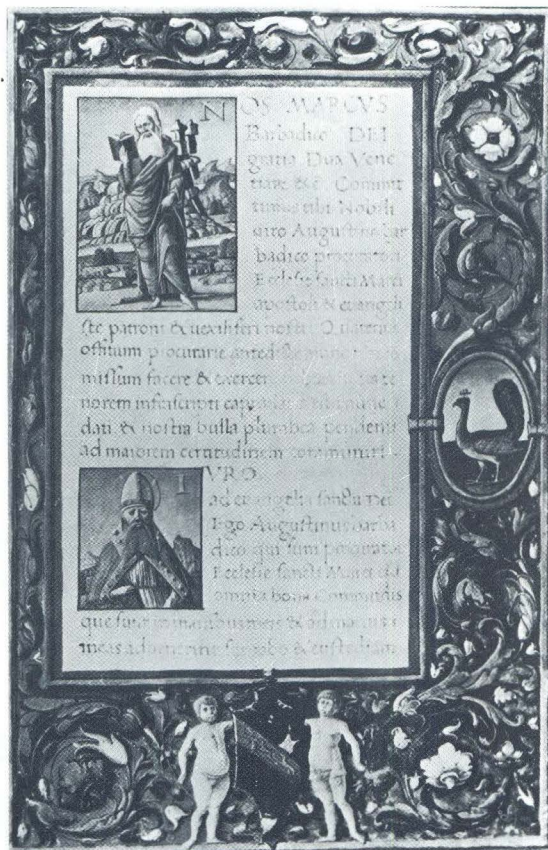 NOS MARCVS
Barbadico DEI
gratia Dux Vene
tiarum &c. Commit
timus tibi Nobili
uiro Augustino bar
badico procuratori
Ecclesie sancti Marci
apostoli & euangeli
ste patroni & uexilliferi nostri
offitium procuratie
missum facere & exercere
norem infrascripti
dati & nostra bulla plumbea pendenti
ad maiorem certitudinem
IVRO
ad euangelia sancta Dei
Ego Augustinus barba
dico qui sum procurator
Ecclesie sancti Marci
omnia bona Communis
que sunt in manibus meis & ad manus
meas aduenerint & custodiam